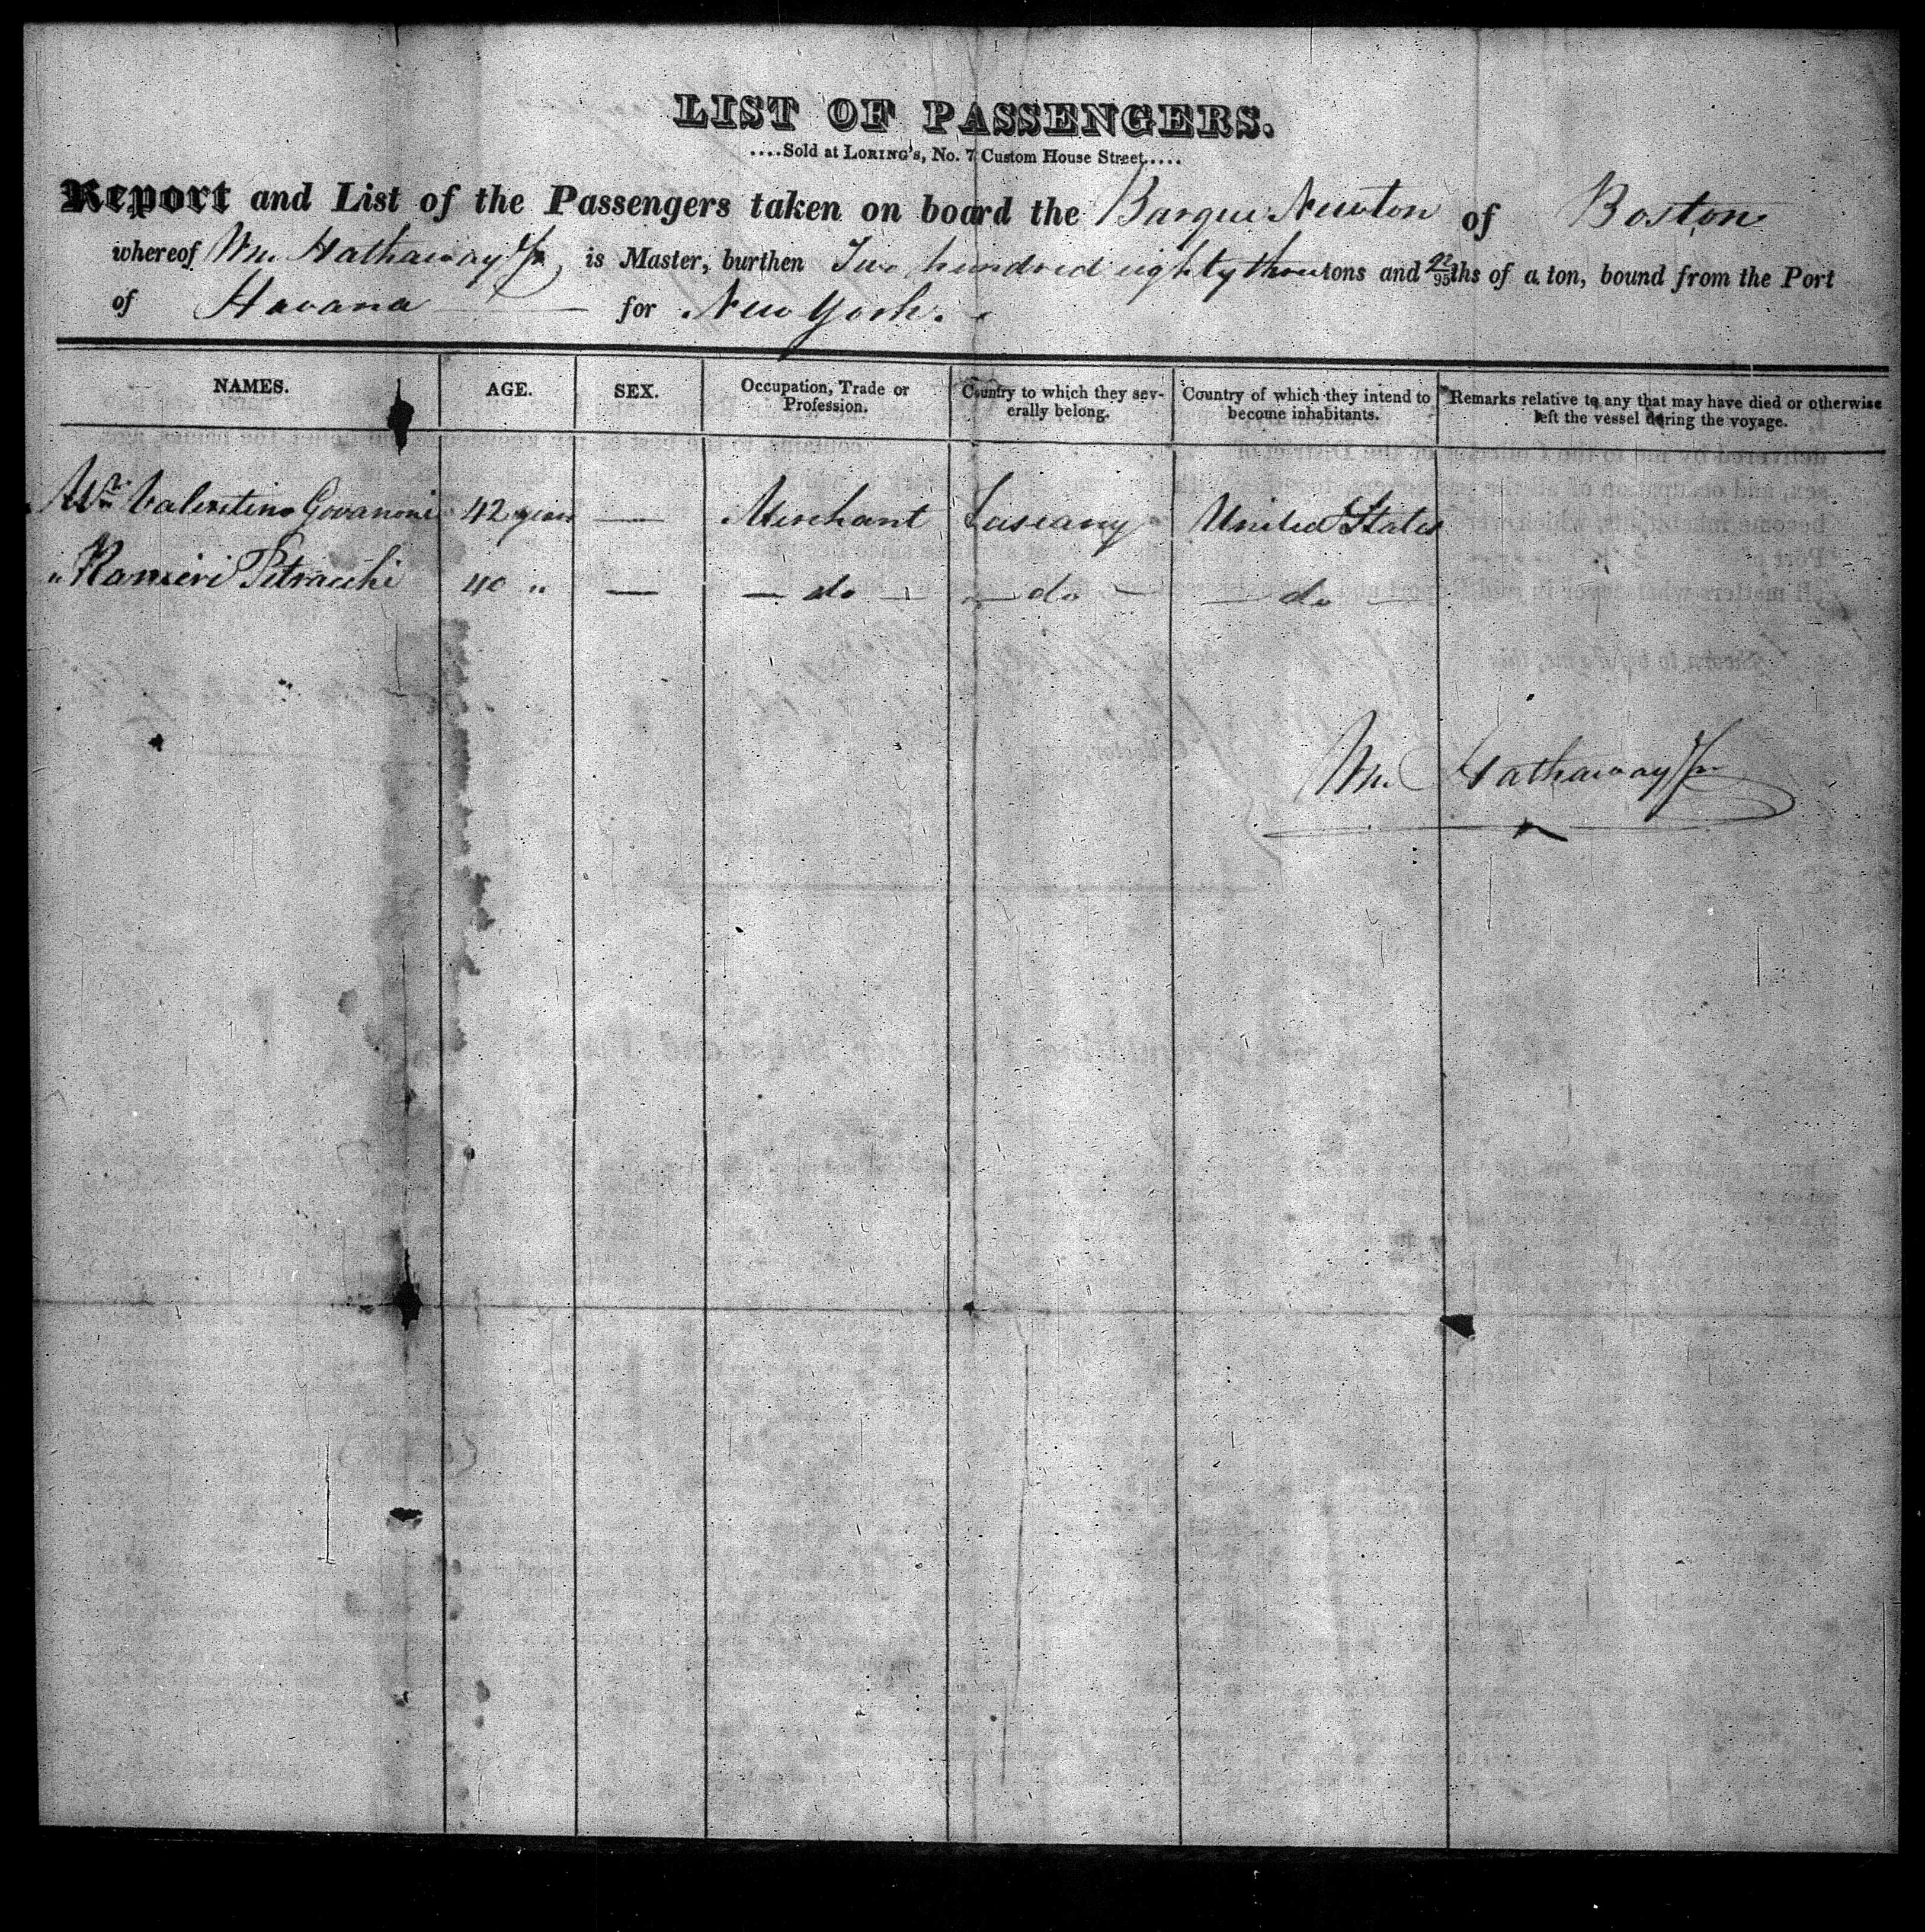 LIST OF PASSENGERS.
....Sold at LORING's, No. 7 Custom House Street.....
Report and List of the Passengers taken on board the Barque Newton of Boston
whereof Wm. Hathaway Jr. is Master, burthen Two hundred eighty three tons and 42/95ths of a ton, bound from the Port
of Havana for New York.
NAMES. AGE. SEX. Occupation, Trade or Profession. Country to which they severally belong. Country of which they intend to become inhabitants. Remarks relative to any that may have died or otherwise left the vessel during the voyage.
Mr. Valentino Govanoni 42 years — Merchant Tuscany United States
" Ranieri Petracchi 40 " — — do — — do — — do —
Wm. Hathaway Jr